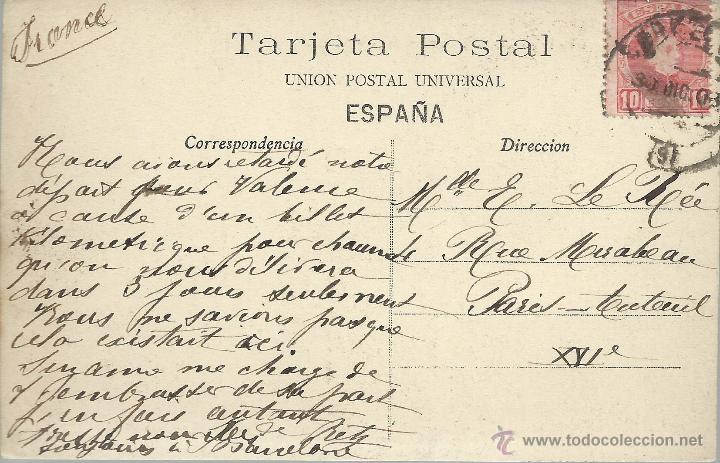 France
Tarjeta Postal
UNION POSTAL UNIVERSAL
ESPAÑA
Correspondencia
Direccion
10
30 DIC 0
Nous avons retardé notre
départ pour Valence
à cause d'un billet
kilometrique pour
qu'on nous délivrera
dans 3 jours seulement
Nous ne savions pas que
cela existait ici
Suzanne me charge de
t'embrasser de sa part
j'en fais autant
Barcelone
Mlle E. Le Rée
4 Rue Mirabeau
Paris-Auteuil
XVIe
© www.todocoleccion.net